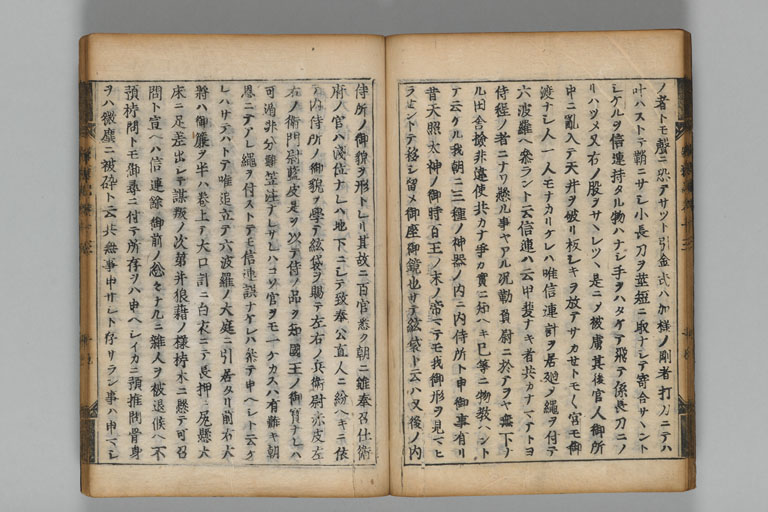 ノ者トモ聲ニ恐アサツト引金武ハ加様ノ剛者打刀ニテハ
叶ハストテ覇ニサシ小長刀ヲ莖短ニ取ナシテ寄合サントント
シケルヲ信連持タル物ハナシ手ヲハタケテ飛テ係長刀ニノ
リハツメ又右ノ股ヲサレツヽ是ニメ被虜其後官人御所
中ニ亂入テ天井ヲ破リ板シキヲ放アサカセトモ宮モ御
渡ナシ人一人モナカリケレハ唯信連計ヲ若廻ノ繩ヲ付テ
六波羅ヘ參ラント云信連ハ云甲斐ナキ者共カナアトヨ
侍程ノ者ニナワ懸ル事ヤアル況勒負尉ニ於アヲヤ無下ナ
ル田舎檢非違使共カナ爭カ實ニ知ヘキ已等ニ物敎ヘント
テ云ケル我朝ニ三種ノ神器ノ内ニ内侍所ト申御事有リ
昔天照太神ノ御時百王ノ末ノ帝マテモ我御形ヲ見マヒ
ラセントテ移シ留メ御座御鏡也サテ絃袋ト云ハ又後ノ内
侍所ノ御貌ヲ形トレリ其故ニ百官悉ク朝ニ雖奉召仕衛
府ノ官ハ淺位ナレハ地下ニシテ致奉公直人ニ紛ヘキニ依
内侍所ノ御貌ヲ學テ絃袋ヲ賜テ左右ノ兵衛尉赤皮左
右ノ衛門尉藍皮是ヲ以テ侍ノ品ヲ知國王ノ御寳ナレハ
可過非分難笠注ナレサレハコソ官ヲモ一ケカスハ有難キ朝
恩ニテアレ繩ヲ付ストテモ信連誤ナケレハ參テ申ヘシト云ケ
レハサテハトテ唯追立テ六波羅ノ大庭ニ引居タリ前右大
將ハ御簾ヲ半ハ卷上テ大口計ニ白衣ニテ長押ニ尻懸大
床ニ足差出シテ謀叛ノ次第并狼藉ノ様拷木ニ懸テ可召
問ト宣ヘハ信連餘御前ノ忩々ナルニ雜人ヲ被退候ヘ不
預拷問トモ御尋ニ付テ所存ヲハ申ヘシイカニ預推問骨身
ヲハ微塵ニ被碎ト云共無事申サシト存リラン事ハ申マシ